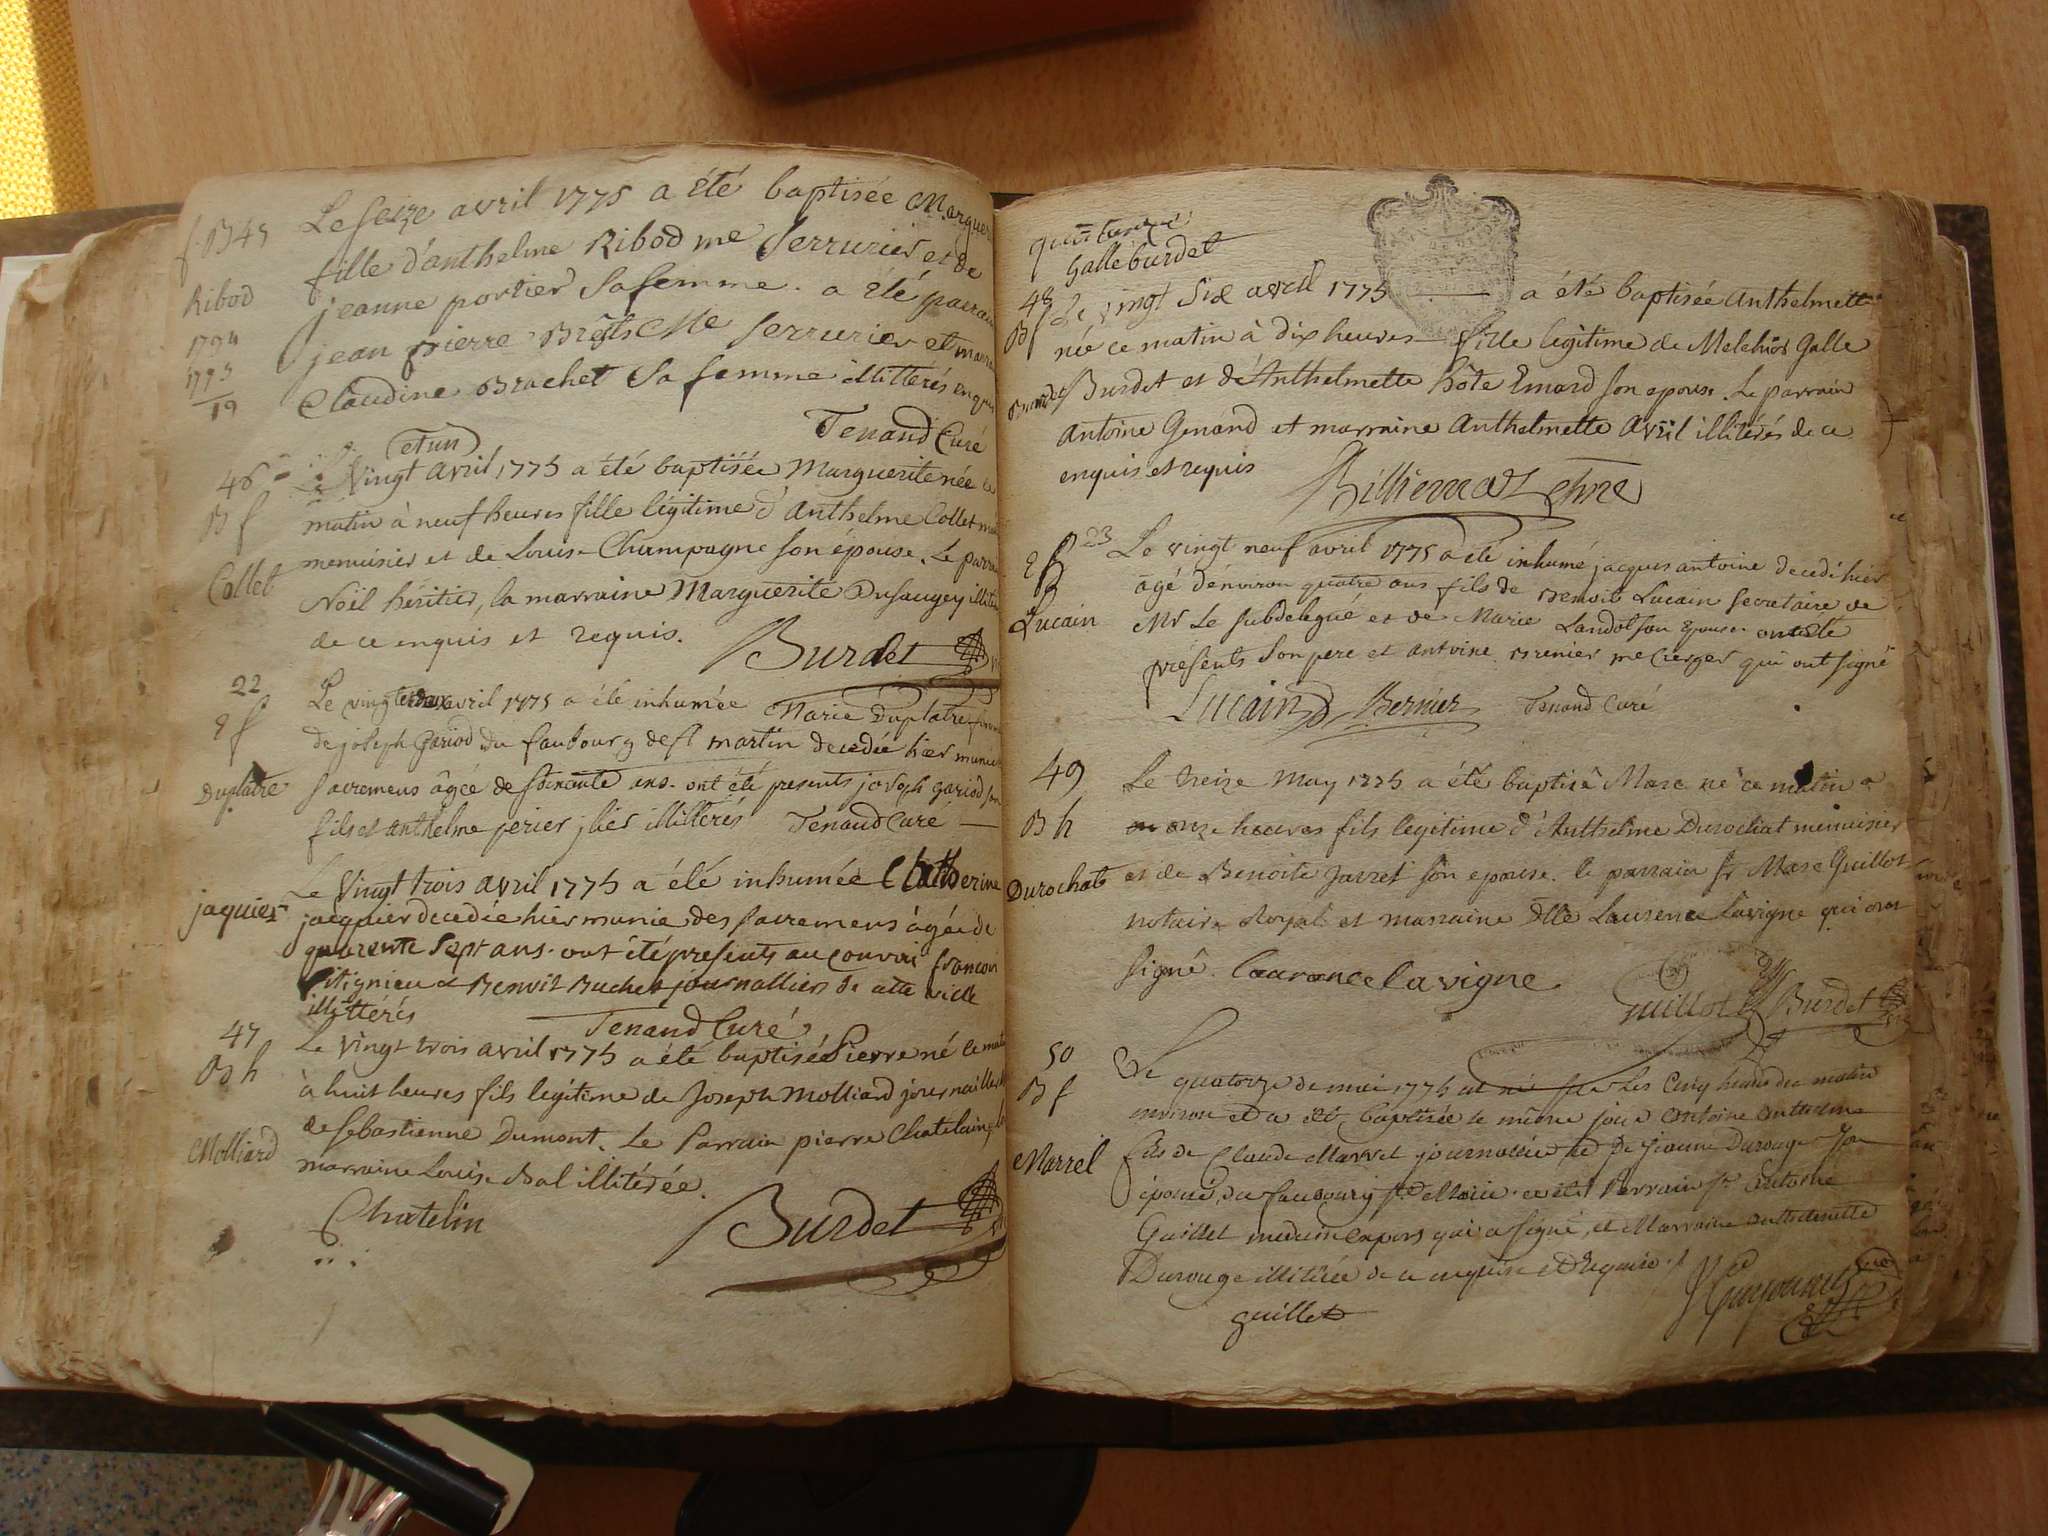 f. B 45
Ribod
1794
1775
19
Le seize avril 1775 a été baptisée Margueri
fille d'anthelme Ribod me Serrurier et de
jeanne portier Sa femme. a été parrain
jean pierre Me Serrurier et marra
Claudine Brachet Sa femme illitterés enquis
Tenand Curé
et un
46
B f
Collet
Vingt avril 1775 a été baptisée Marguerite née ce
matin à neuf heures fille légitime d'Anthelme Collet
menuisier et de Louise Champagne son épouse. Le parrain
Noël héritier, la marraine Marguerite Dusaugey
de ce enquis et requis.
Burdet
22
f
Duplatre
Le vingt avril 1775 a été inhumée Marie Duplatre
de joseph Gariod du faubourg de st martin decedée hier munie
sacremens âgée de soixante ans. ont été presents joseph gariod son
fils et anthelme perier illitterés Tenand Curé
jaquier
Le Vingt trois avril 1775 a été inhumée Catherine
jacquier decedée hier munie des sacremens âgée de
quarente sept ans. ont été presents au convoi francois
et Benoit Buchet journalliers de cette ville
illittérés
Tenand Curé
47
B h
Molliard
Le vingt trois avril 1775 a été baptisé Pierre né ce matin
à huit heures fils legitime de Joseph Molliard journallier
de sebastienne Dumont. Le Parrain pierre Chatelain
marraine Louise Bal illitérée.
Chatelin
Burdet
Galle burdet
48
Bf
Le vingt Six avril 1775 a été baptisée Anthelmette
née ce matin à dix heures fille légitime de Melchior Galle
Burdet et d'Anthelmette hôte Emard son epouse. Le parrain
Antoine Genand et marraine Anthelmette Avril illitérés de ce
enquis et requis
23
Lucain
Le vingt neuf avril 1775 a été inhumé jacques antoine decedé hier
agé d'environ quatre ans fils de Benoit Lucain Secretaire de
Mr Le subdelegué et de Marie Landot son Epouse. ont été
présents Son pere et antoine qui ont signé
Lucain Bernier Tenand Curé
49
B h
Durochat
Le treize May 1775 a été baptisé Marc né ce matin a
onze heures fils legitime d'Anthelme Durochat menuisier
et de Benoite Javret son epouse. le parrain Sr Marc Guillot
notaire Royal et marraine Dlle Laurence Lavigne qui ont
signé. Laurance lavigne
Guillot Burdet
50
B f
Marrel
Le quatorze de mai 1775 est né sur Les Cinq heures du matin
environ et a été baptisée le même jour Antoine Anthelme
fils de Claude Marrel journalier et De Jeanne Durouge Son
épouse, du faubourg a été Parrain Sr Antoine
Guillet medecin qui a signé, et Marraine anthelmette
Durouge illitérée de ce enquise et Requise
guillet